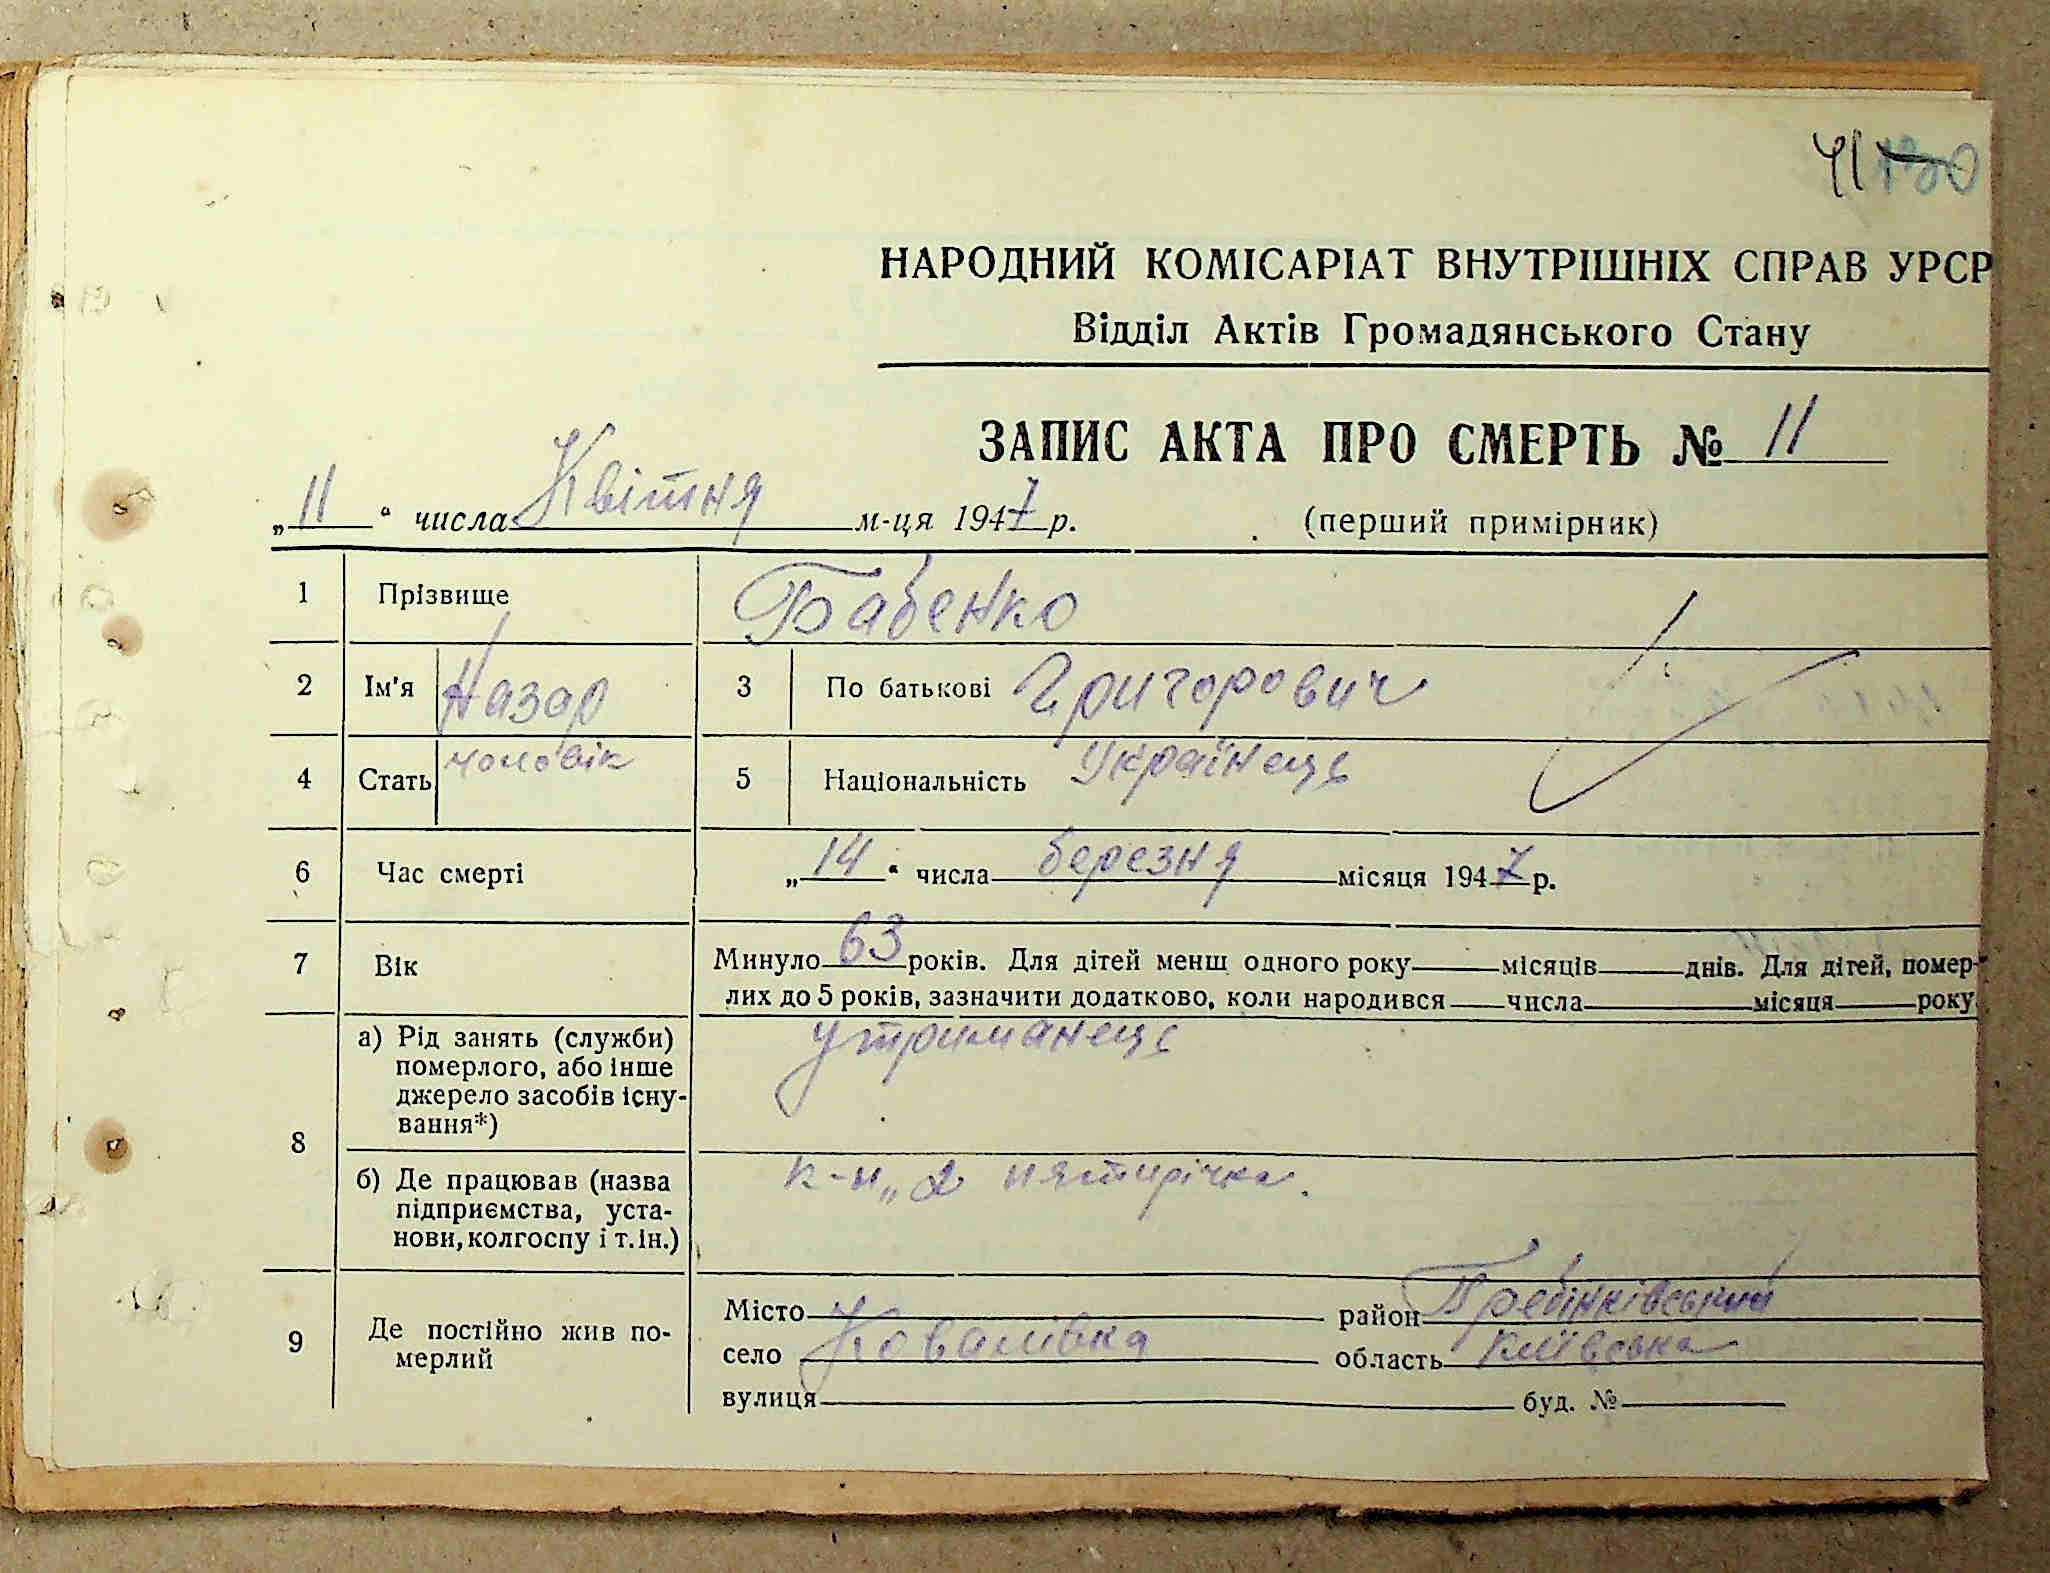 41 130
НАРОДНИЙ КОМІСАРІАТ ВНУТРІШНІХ СПРАВ УРСР
Відділ Актів Громадянського Стану
ЗАПИС АКТА ПРО СМЕРТЬ № 11
„11“ числа Квітня м-ця 1947 р. (перший примірник)
1 Прізвище Бабенко
2 Ім'я Назар 3 По батькові Григорович
4 Стать чоловік 5 Національність Українець
6 Час смерті „14“ числа березня місяця 1947 р.
7 Вік Минуло 63 років. Для дітей менш одного року місяців днів. Для дітей, помер-
лих до 5 років, зазначити додатково, коли народився числа місяця року
8 а) Рід занять (служби) померлого, або інше джерело засобів існу-вання*) утриманець
б) Де працював (назва підприємства, уста-нови, колгоспу і т. ін.) к-п „2 пятирічка.
9 Де постійно жив по-мерлий
Місто район Гребінківський
село Ковалівка область Київська
вулиця буд. №